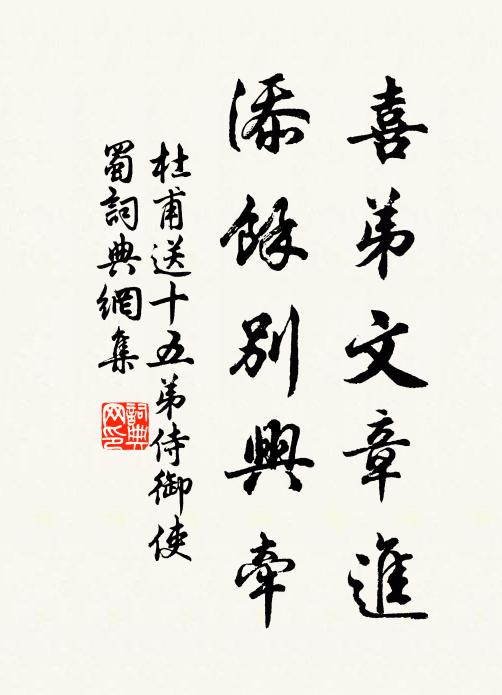 喜弟文章進
添餘別興牽
杜甫送十五弟侍御使
蜀詞典網集
詞典网印